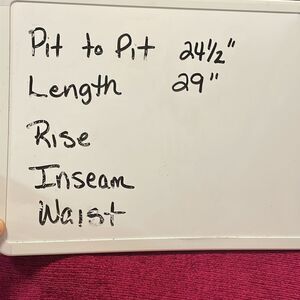 Pit to Pit 24 1/2"
Length 29"
Rise
Inseam
Waist